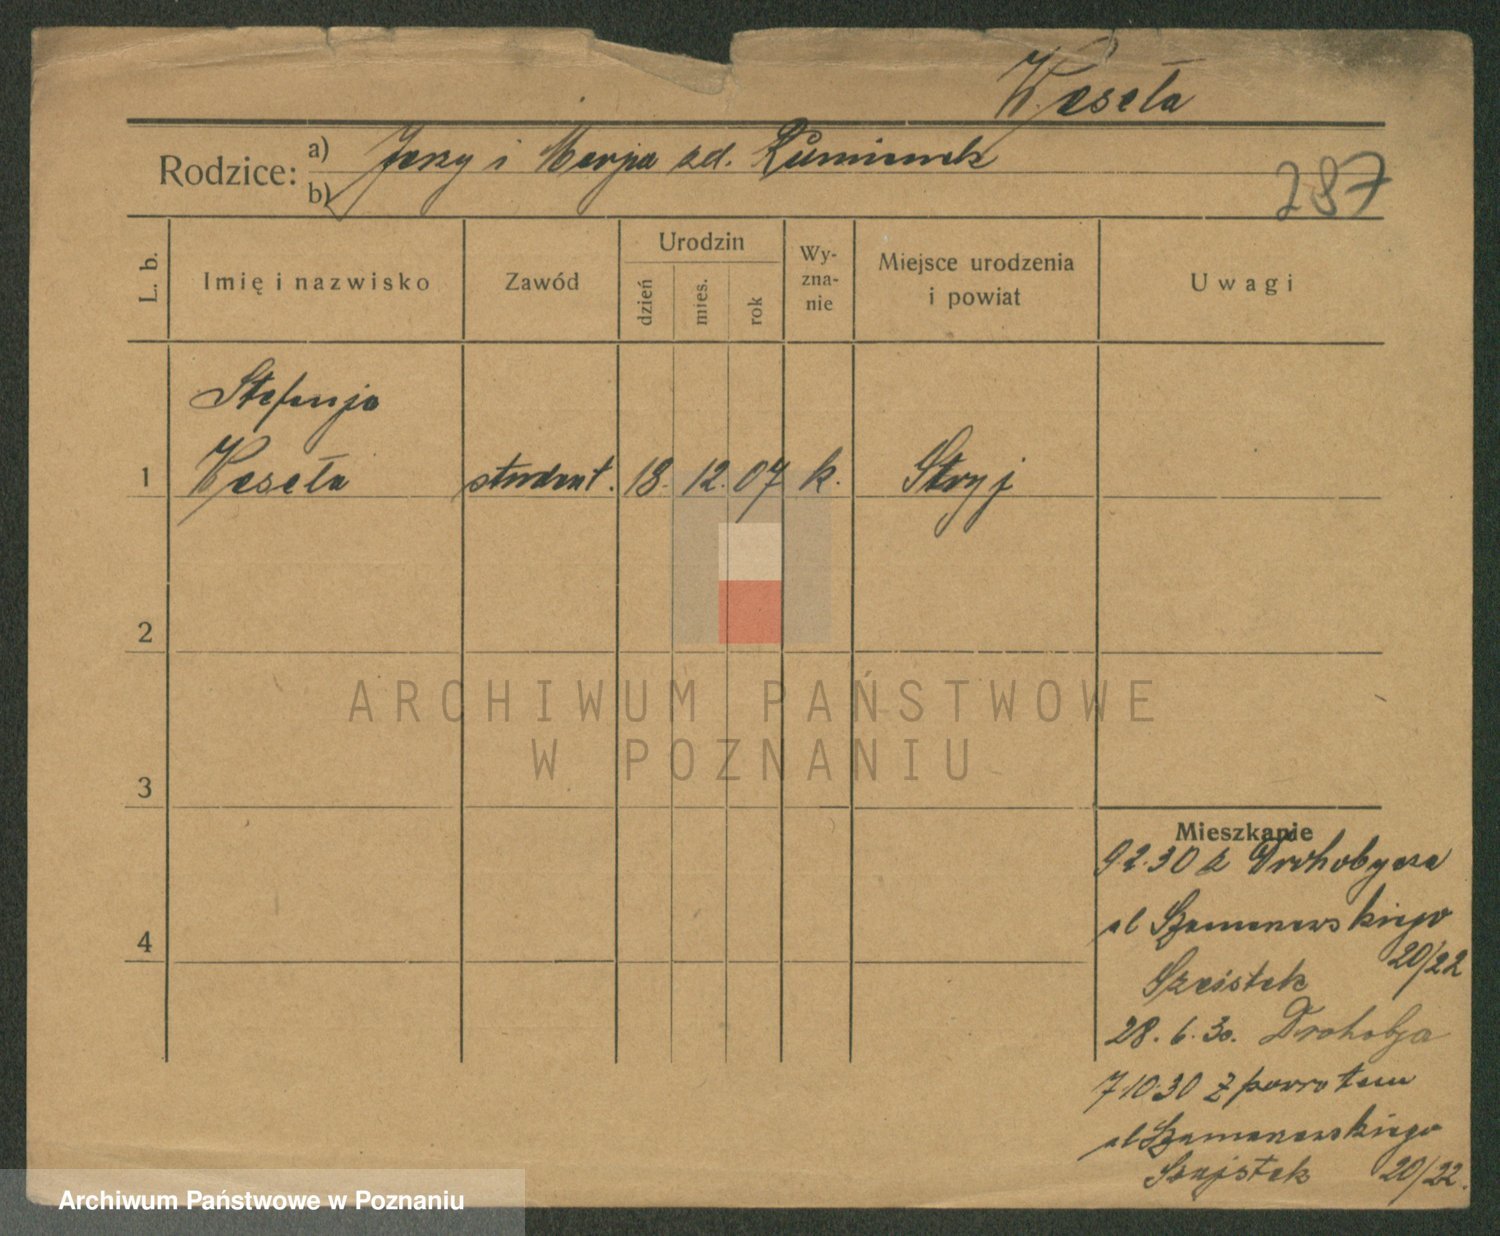 Weseła
Rodzice: a) Jerzy i Marja zd.
b)
287
L. b.
Imię i nazwisko
Zawód
Urodzin
dzień
mies.
rok
Wy-
zna-
nie
Miejsce urodzenia
i powiat
Uwagi
Stefanja
1 Weseła student. 18. 12. 07 k. Stryj
2
ARCHIWUM PAŃSTWOWE
W POZNANIU
3
Mieszkanie
9 2. 30 z Drohobycza
ul Szamarzewskiego
20/22
4
28. 6. 30. Drohobycz
7 10 30 z powrotem
ul Szamarzewskiego
20/22.
Archiwum Państwowe w Poznaniu